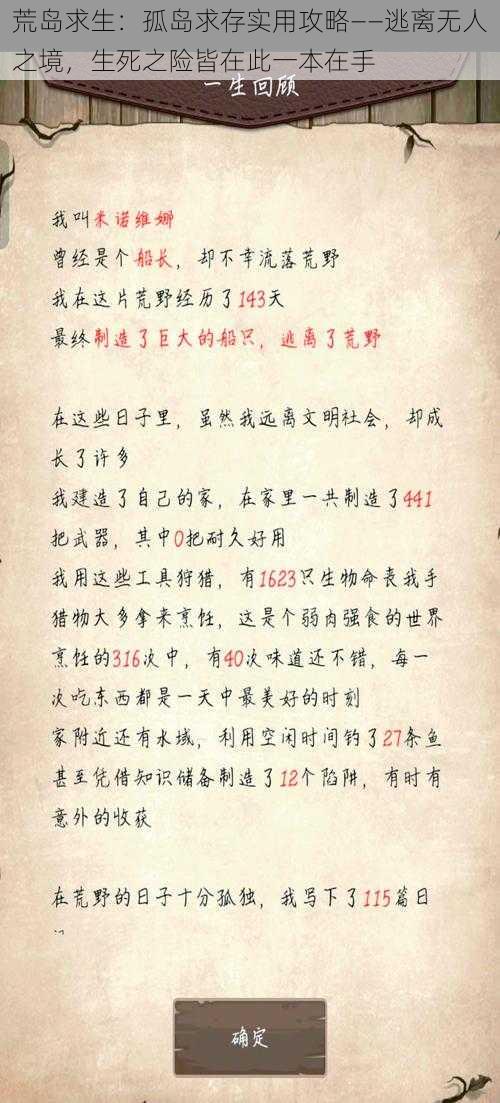 荒岛求生：孤岛求存实用攻略——逃离无人
之境，生死之险皆在此一本在手
一生回顾
我叫米诺维娜
曾经是个船长，却不幸流落荒野
我在这片荒野经历了143天
最终制造了巨大的船只，逃离了荒野
在这些日子里，虽然我远离文明社会，却成
长了许多
我建造了自己的家，在家里一共制造了441
把武器，其中0把耐久好用
我用这些工具狩猎，有1623只生物命丧我手
猎物大多拿来烹饪，这是个弱肉强食的世界
烹饪的316次中，有40次味道还不错，每一
次吃东西都是一天中最美好的时刻
家附近还有水域，利用空闲时间钓了27条鱼
甚至凭借知识储备制造了12个陷阱，有时有
意外的收获
在荒野的日子十分孤独，我写下了115篇日
确定